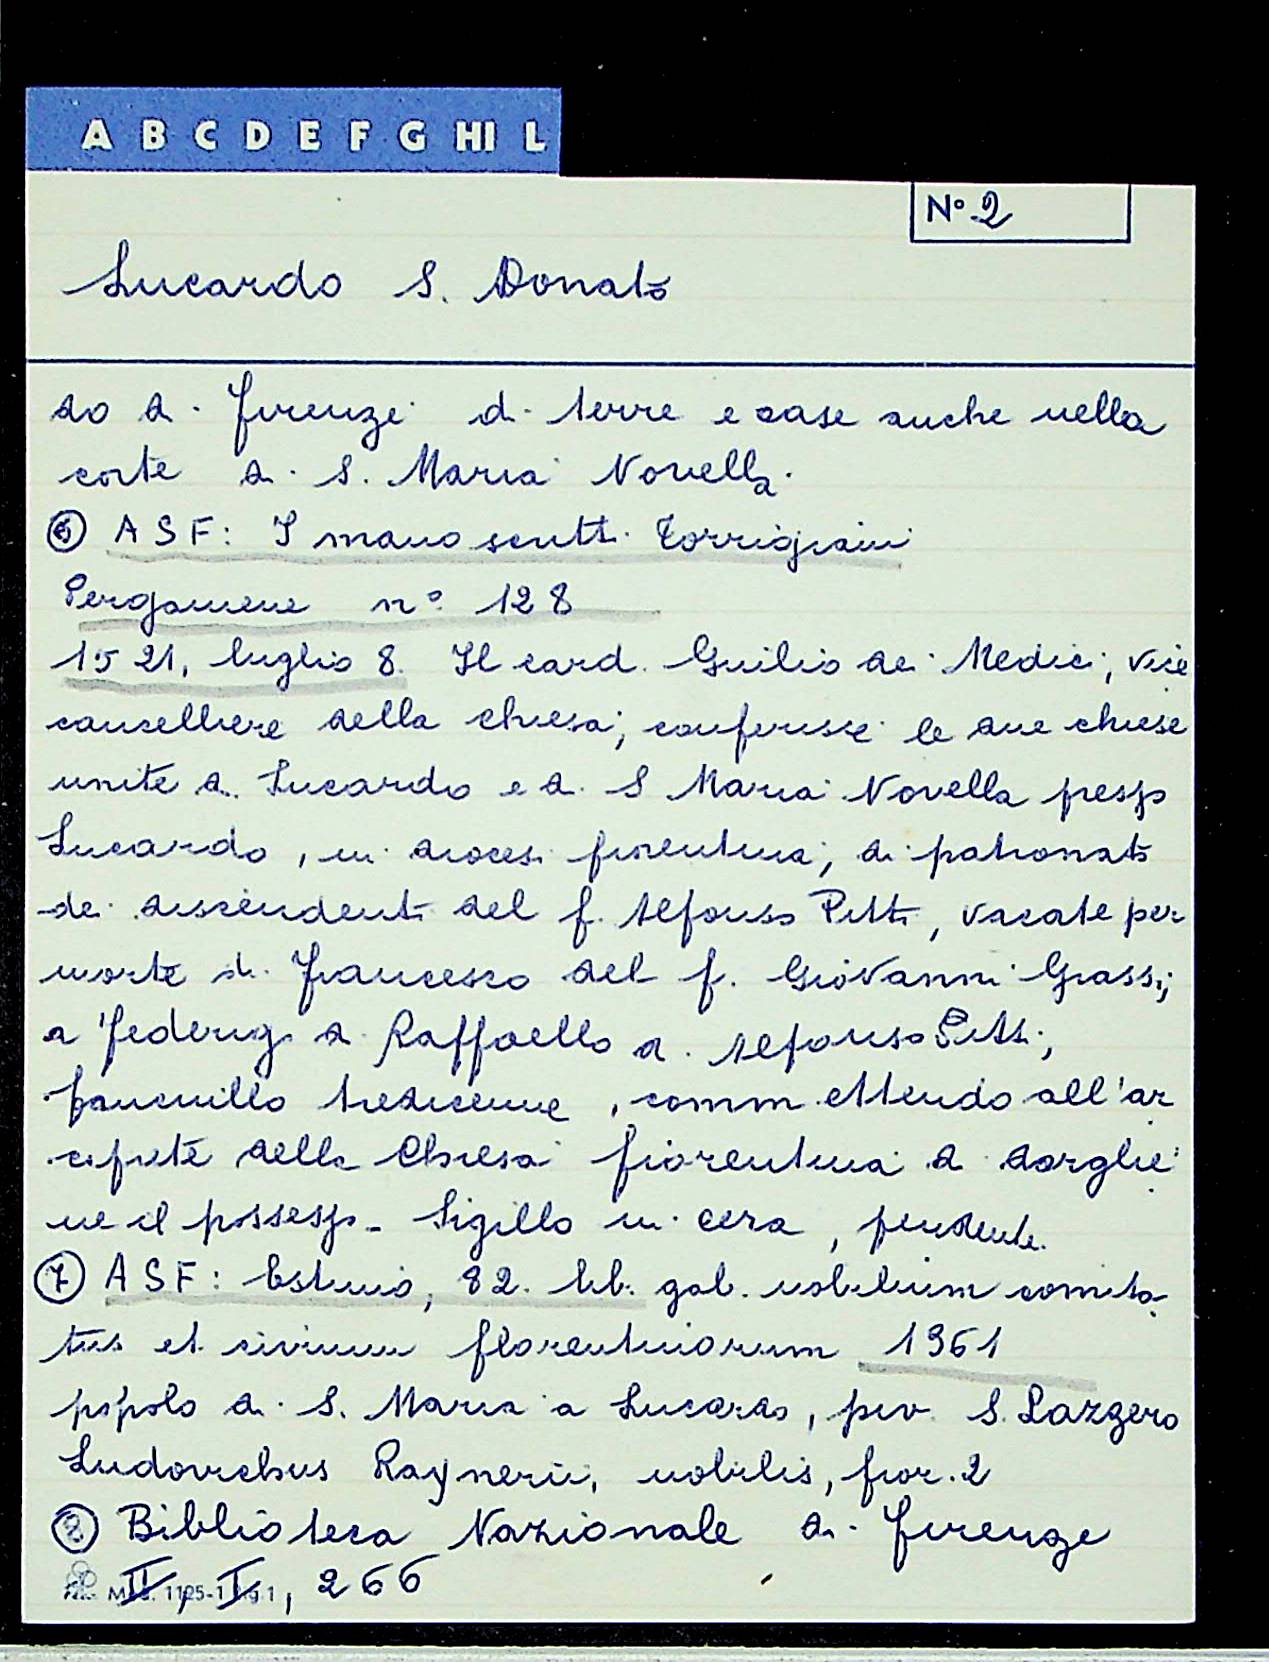 A B C D E F G HI L
N° 2
Lucardo S. Donato
do di Firenze di terre e case anche nella
corte di S. Maria Novella.
⑥ ASF: I manoscritti Torrigiani
Pergamene n° 128
1521, luglio 8. Il card. Guilio dei Medici, vice
cancelliere della chiesa, conferisce le due chiese
unite di Lucardo e di S Maria Novella presso
Lucardo, in diocesi fiorentina, di patronato
dei discendenti del f. Alfonso Pitti, vacate per
morte di Francesco del f. Giovanni Grassi,
a Federigo di Raffaello di Alfonso Pitti,
fanciullo tredicenne, commettendo all'ar
ciprete della Chiesa fiorentina di dargliene
ne il possesso - Sigillo in cera, pendente.
⑦ ASF: Estimo, 82. lib. gab. nobilium comita
tus et civium florentinorum 1361
popolo di S. Maria a Lucardo, piv. S. Lazzero
Ludovichus Raynerii, nobilis, fior. 2
⑧ Biblioteca Nazionale di Firenze
II, I, 266